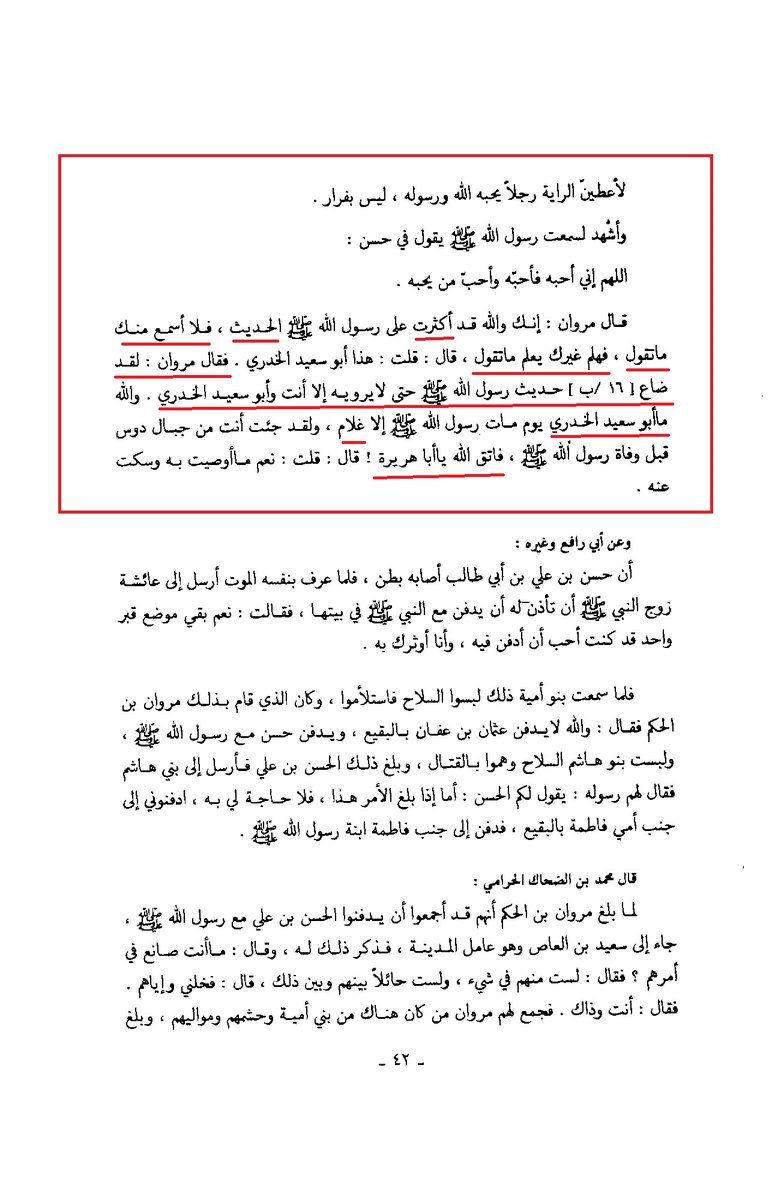 لأعطينّ الراية رجلاً يحبه الله ورسوله ، ليس بفرار .
وأشهد لسمعت رسول الله ﷺ يقول في حسن :
اللهم إني أحبه فأحبّه وأحبّ من يحبه .
قال مروان : إنك والله قد أكثرت على رسول الله ﷺ الحديث ، فلا أسمع منك
ماتقول ، فهلم غيرك يعلم ماتقول ، قال : قلت : هذا أبو سعيد الخدري . فقال مروان : لقد
ضاع [ ١٦ /ب ] حديث رسول الله ﷺ حتى لايرويه إلا أنت وأبو سعيد الخدري . والله
ماأبو سعيد الخدري يوم مات رسول الله ﷺ إلا غلام ، ولقد جئت أنت من جبال دوس
قبل وفاة رسول الله ﷺ ، فاتق الله ياأبا هريرة ! قال : قلت : نعم ماأوصيت به وسكت
عنه .
وعن أبي رافع وغيره :
أن حسن بن علي بن أبي طالب أصابه بطن ، فلما عرف بنفسه الموت أرسل إلى عائشة
زوج النبي ﷺ أن تأذن له أن يدفن مع النبي ﷺ في بيتها ، فقالت : نعم بقي موضع قبر
واحد قد كنت أحب أن أدفن فيه ، وأنا أوثرك به .
فلما سمعت بنو أمية ذلك لبسوا السلاح فاستلأموا ، وكان الذي قام بذلك مروان بن
الحكم فقال : والله لايدفن عثمان بن عفان بالبقيع ، ويدفن حسن مع رسول الله ﷺ ،
ولبست بنو هاشم السلاح وهموا بالقتال ، وبلغ ذلك الحسن بن علي فأرسل إلى بني هاشم
فقال لهم رسوله : يقول لكم الحسن : أما إذا بلغ الأمر هذا ، فلا حاجة لي به ، ادفنوني إلى
جنب أمي فاطمة بالبقيع ، فدفن إلى جنب فاطمة ابنة رسول الله ﷺ .
قال محمد بن الضحاك الحرامي :
لما بلغ مروان بن الحكم أنهم قد أجمعوا أن يدفنوا الحسن بن علي مع رسول الله ﷺ ،
جاء إلى سعيد بن العاص وهو عامل المدينة ، فذكر ذلك له ، وقال : ماأنت صانع في
أمرهم ؟ فقال : لست منهم في شيء ، ولست حائلاً بينهم وبين ذلك ، قال : فخلني وإياهم .
فقال : أنت وذاك . فجمع لهم مروان من كان هناك من بني أمية وحشمهم ومواليهم ، وبلغ
ـ ٤٢ ـ